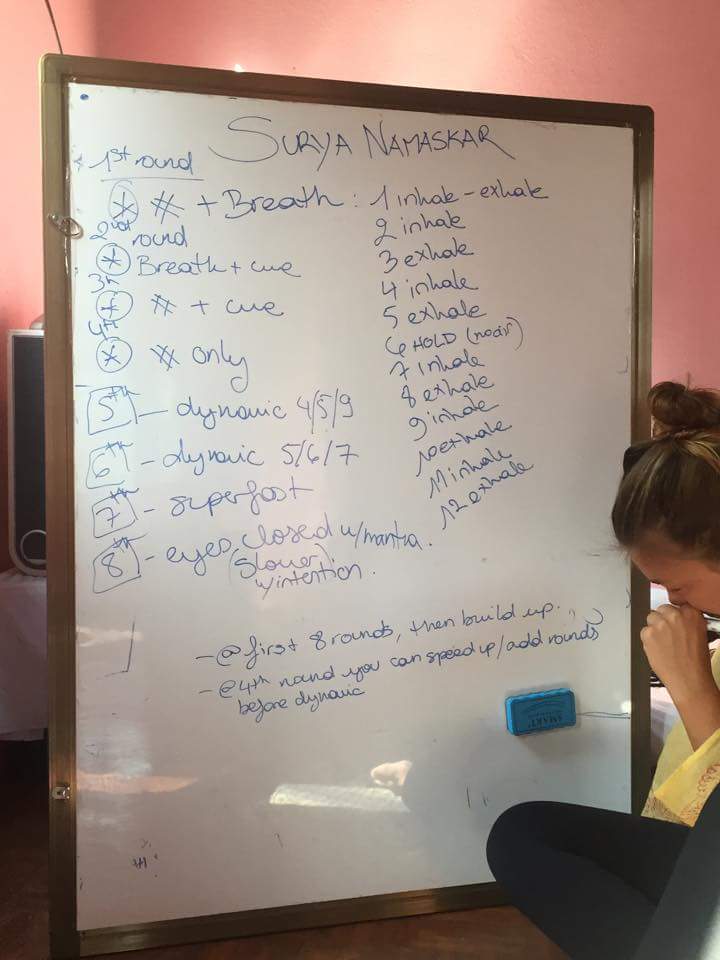 SURYA NAMASKAR
1st round
* # + Breath : 1 inhale - exhale
2 inhale
3 exhale
4 inhale
5 exhale
6 HOLD (no air)
7 inhale
8 exhale
9 inhale
10 exhale
11 inhale
12 exhale
2nd round
* Breath + cue
3rd
* # + cue
4th
* # only
5th - dynamic 4/5/9
6th - dynamic 5/6/7
7th - superfast
8th - eyes closed w/mantra.
(slower)
w/intention.
- @ first 8 rounds, then build up.
- @ 4th round you can speed up/add rounds
before dynamic
SMART